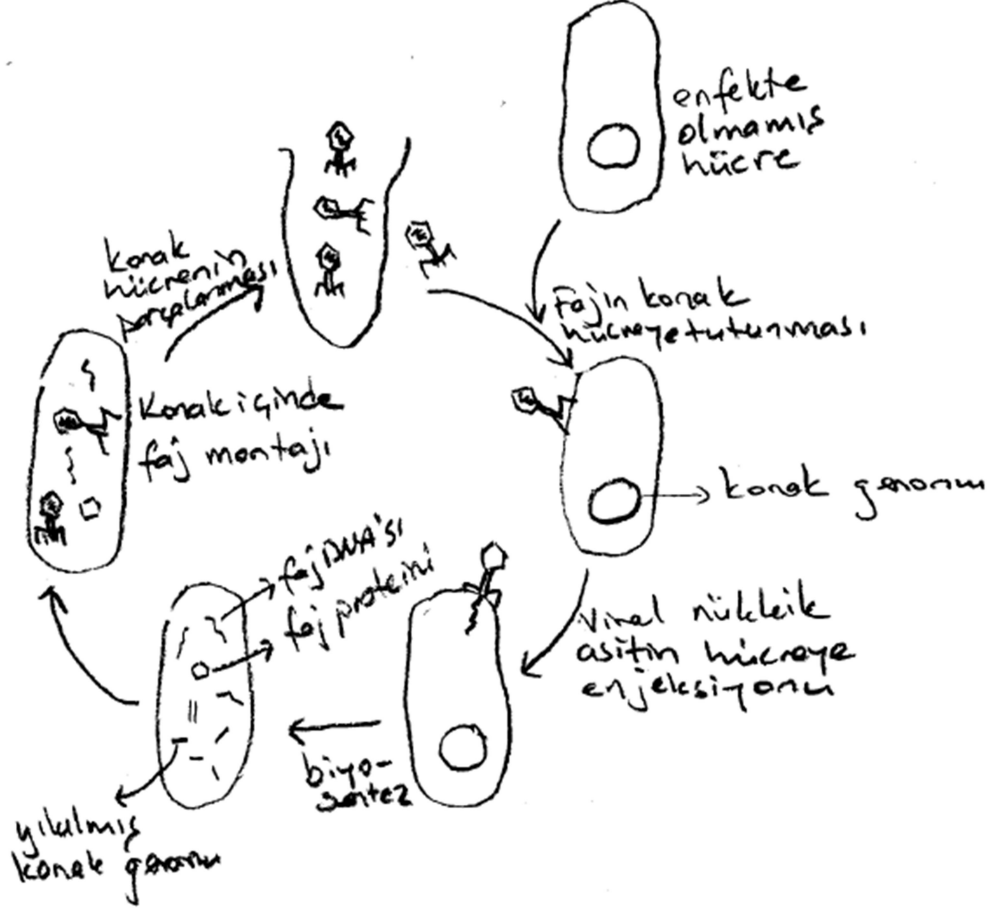 enfekte
olmamış
hücre
Fajın konak
hücreye tutunması
konak genomu
Viral nükleik
asitin hücreye
enjeksiyonu
biyo-
sentez
faj DNA'sı
faj proteini
yıkılmış
konak genomu
Konak içinde
faj montajı
konak
hücrenin
parçalanması